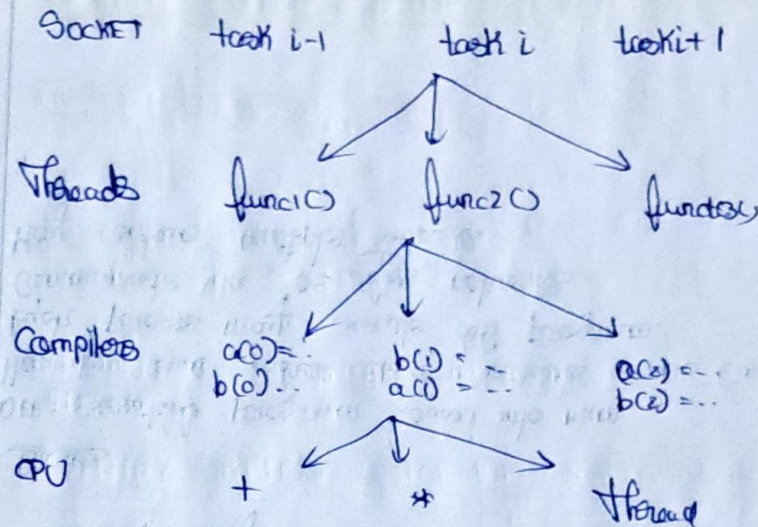 SOCKET task i-1 task i task i+1
Threads func1() func2() func3()
Compilers a(0)=.. b(1) = .. a(2) =..
b(0)... a(1) = ... b(2) =...
CPU + * Thread